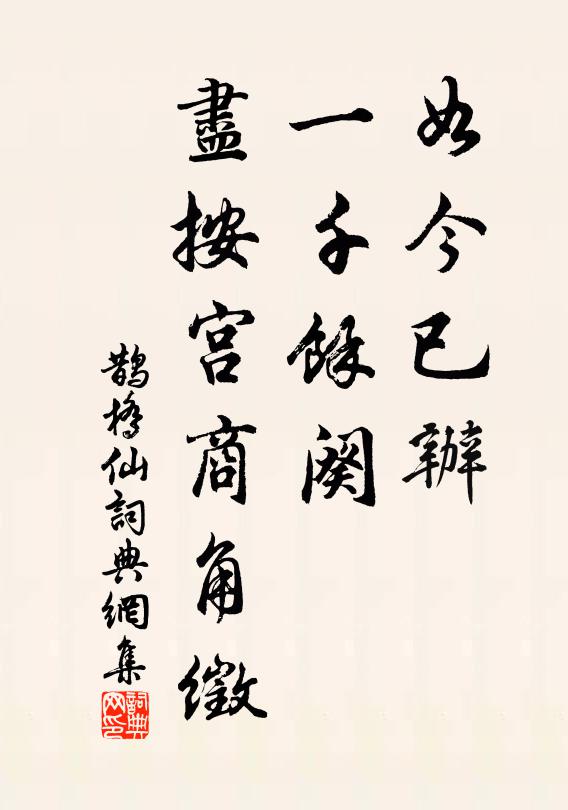 如今已辦
一千餘闋
盡按宮商角徵
鵲橋仙詞典網集
詞典
网印